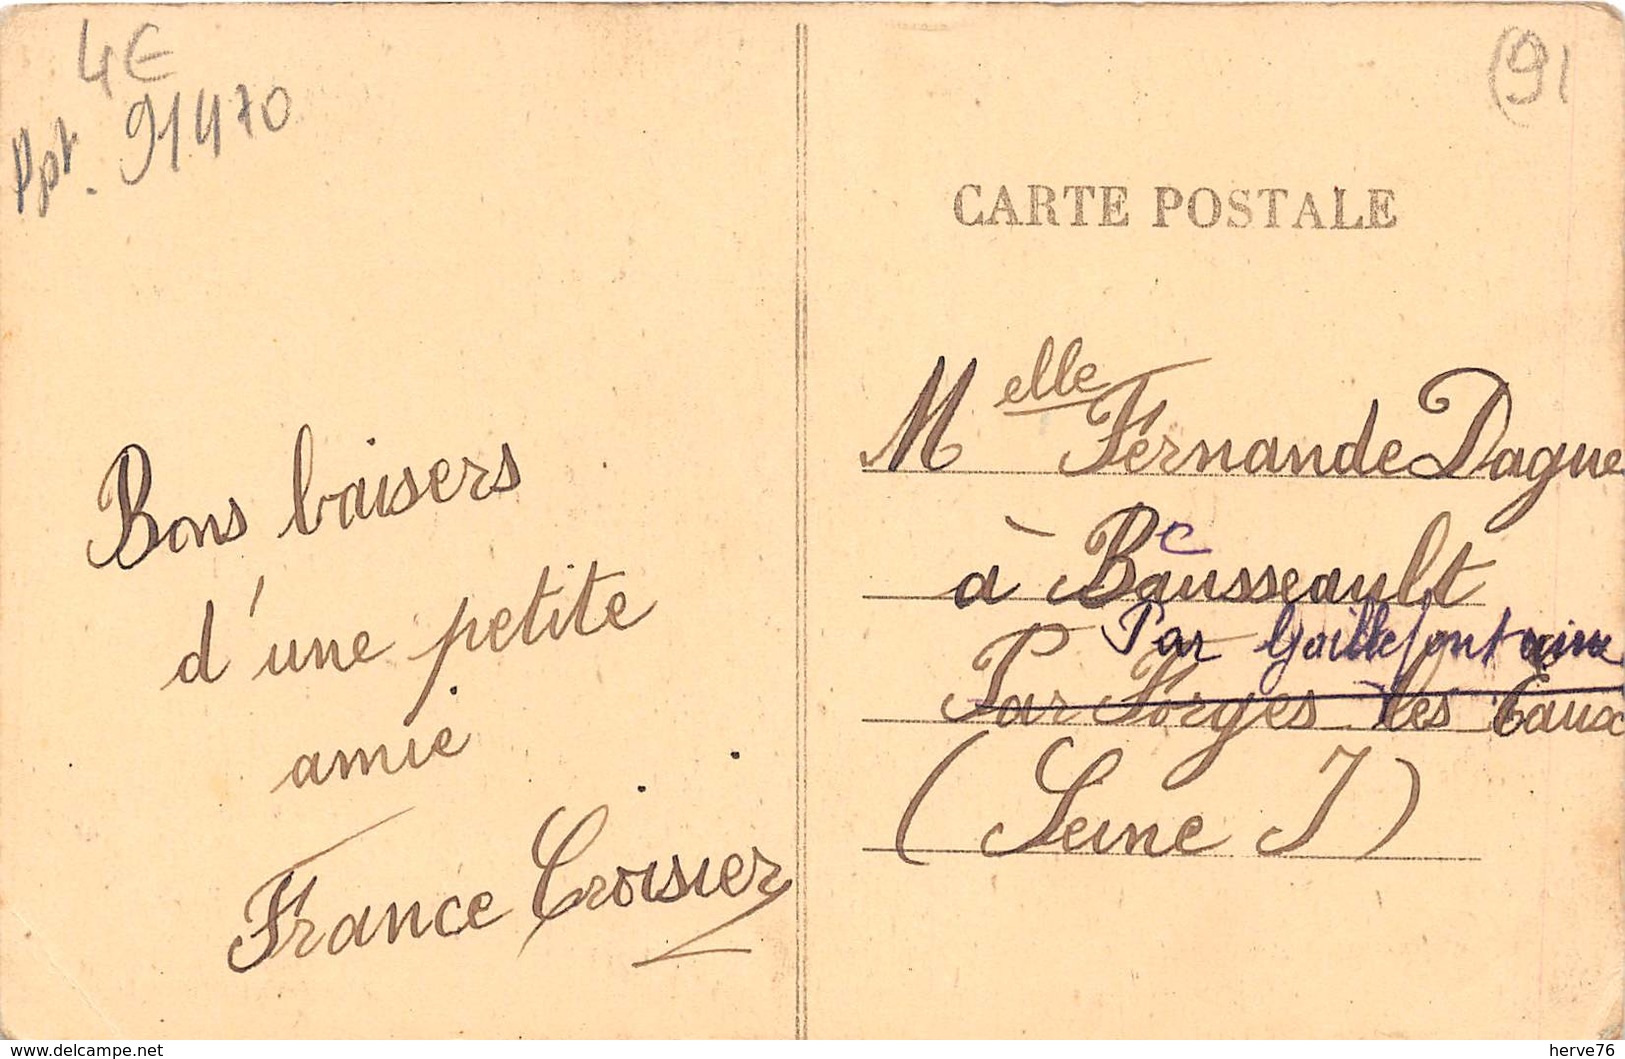 4€
Ppt. 91470
(91
CARTE POSTALE
Bons baisers
d'une petite
amie
France Croisier
Melle Fernande Dague
à Bausseault
Par Gaillefontaine
Par Forges les Eaux
(Seine I)
delcampe.net
herve76